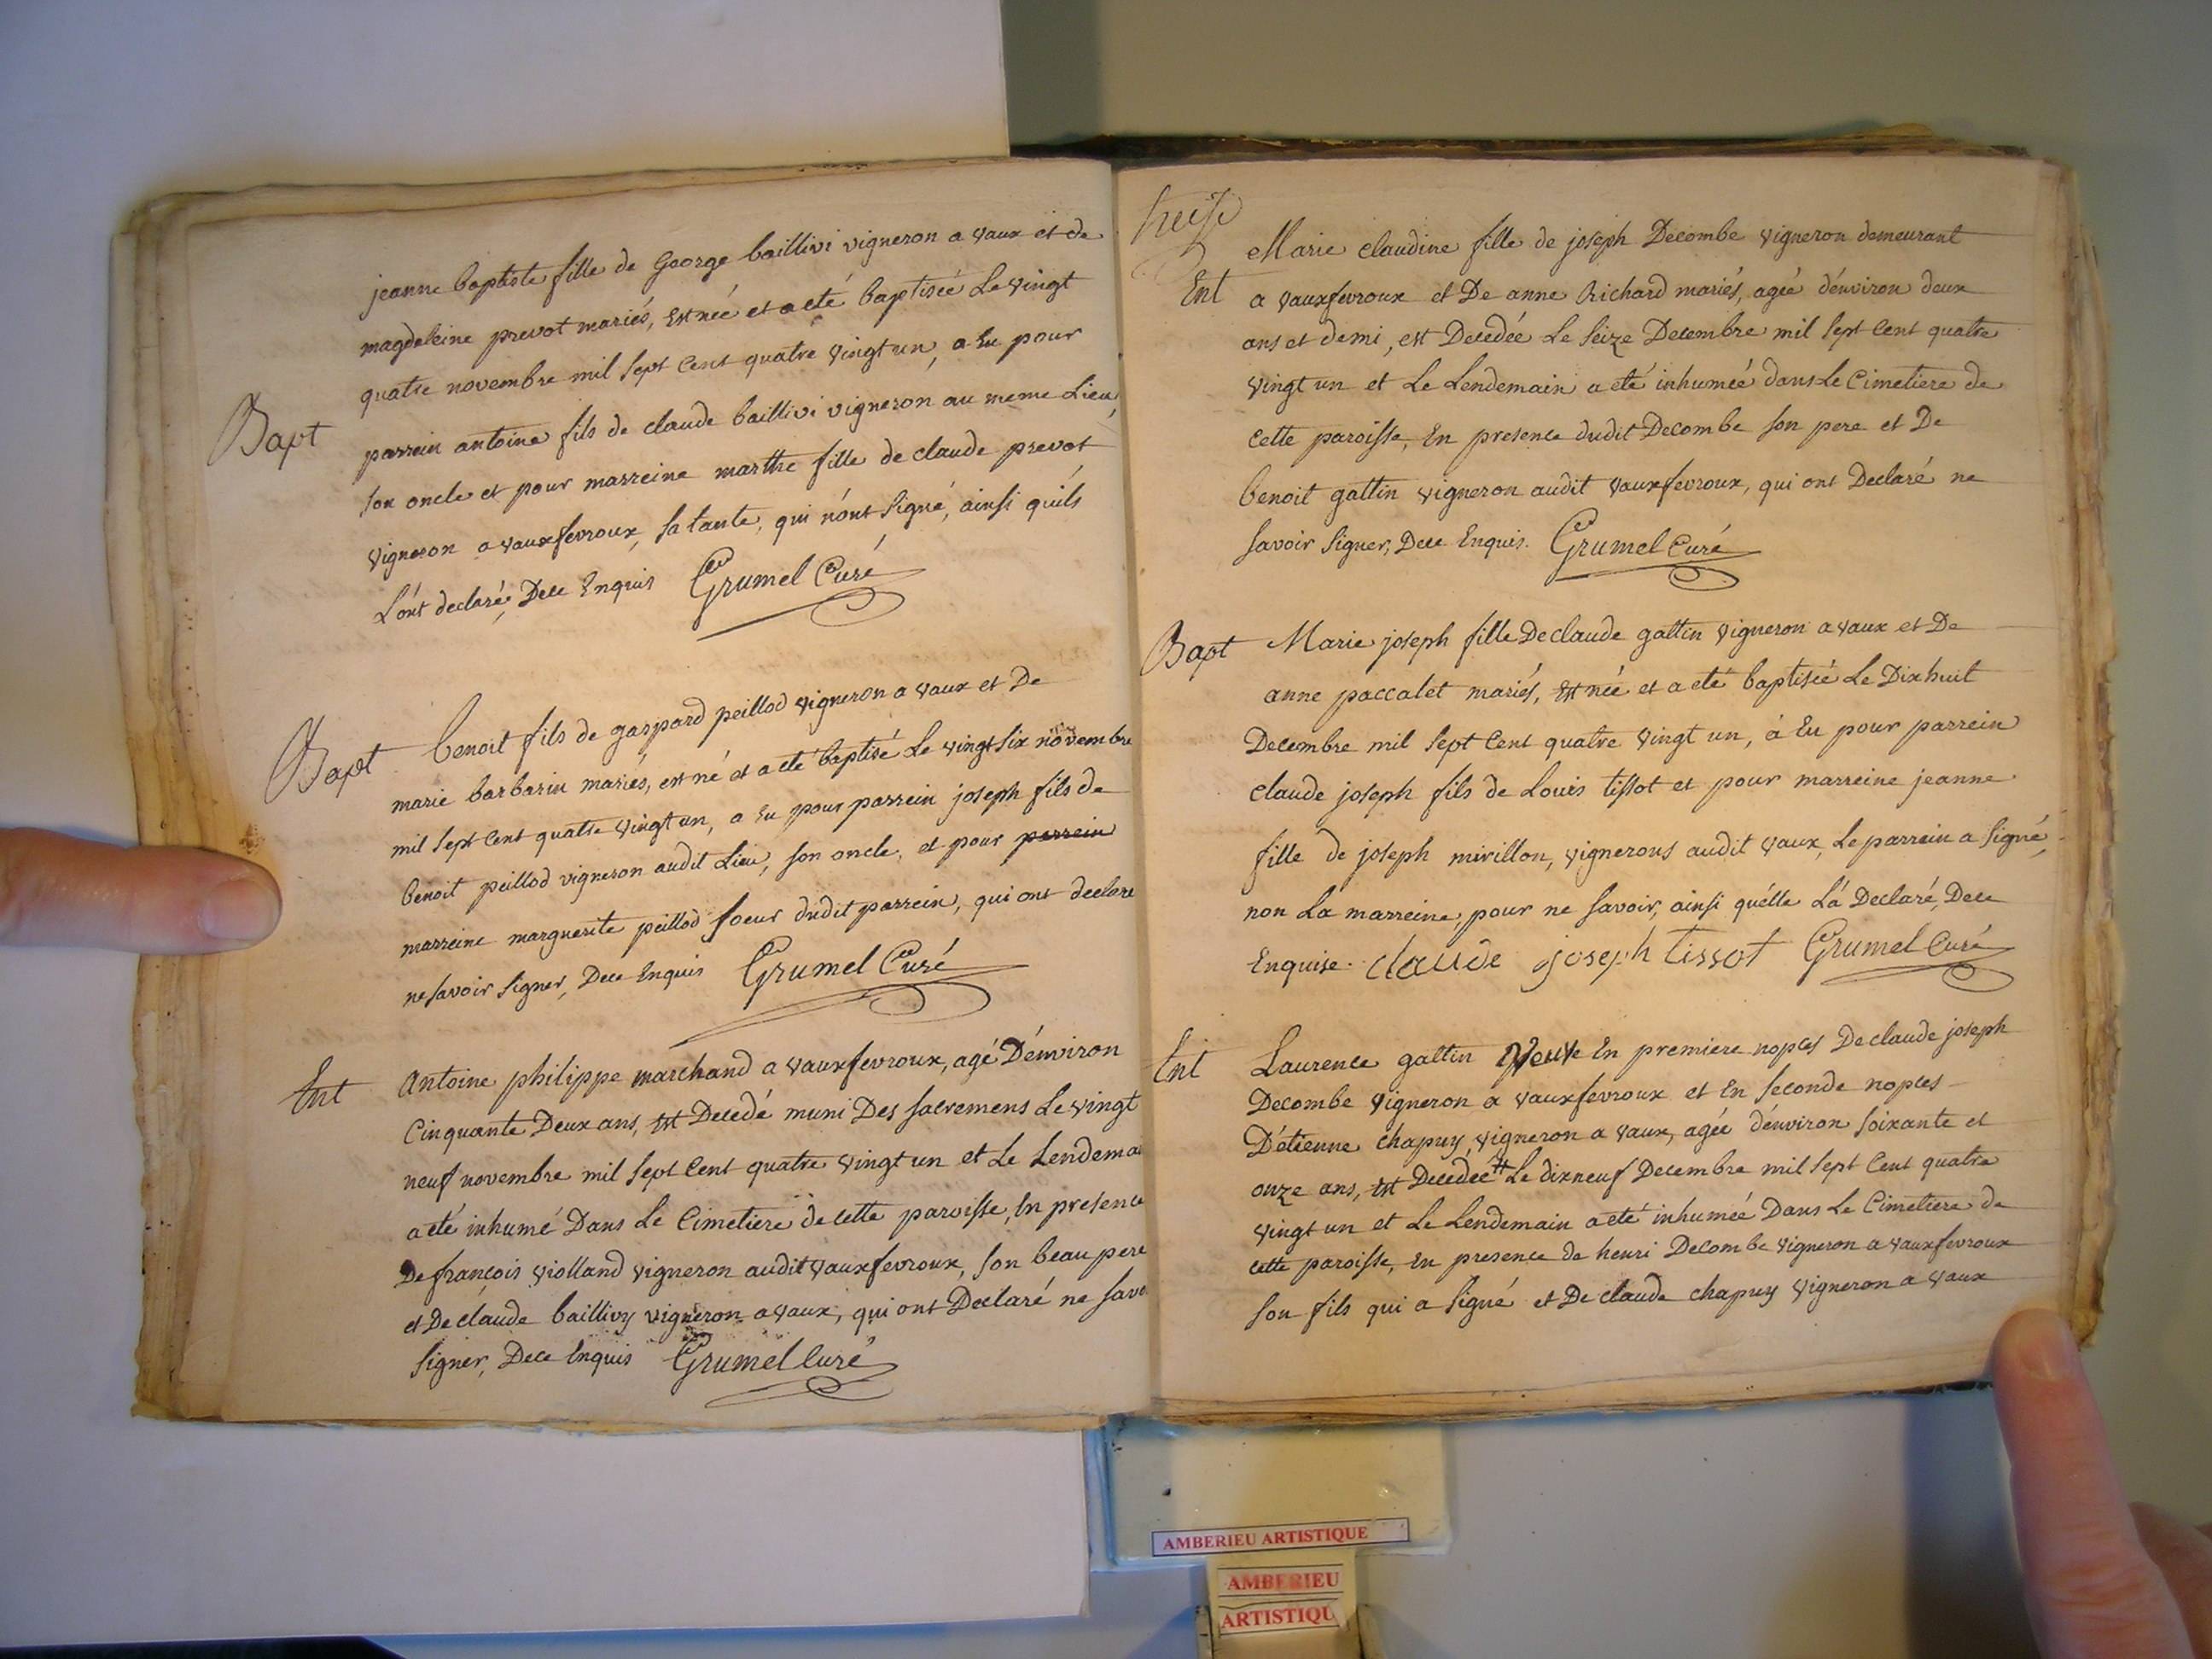 jeanne baptiste fille de George baillivi vigneron a vaux et de
magdeleine prevot mariés, est née et a eté baptisée Le vingt
quatre novembre mil sept cent quatre vingt un, a eu pour
Bapt
parrein antoine fils de claude baillivi vigneron au meme Lieu,
son oncle et pour marreine marthe fille de claude prevot
vigneron a vauxfevroux, sa tante, qui n'ont signé, ainsi qu'ils
L'ont declaré, Dece Enquis Grumel Curé
Bapt benoit fils de gaspard peillod vigneron a vaux et De
marie barbarin mariés, est né et a eté baptisé Le vingt six novembre
mil sept cent quatre vingt un, a eu pour parrein joseph fils de
benoit peillod vigneron audit Lieu, son oncle, et pour parrein
marreine marguerite peillod soeur dudit parrein, qui ont declaré
ne savoir signer, Dece Enquis Grumel Curé
Ent Antoine philippe marchand a vauxfevroux, agé D'environ
Cinquante Deux ans, est Decedé muni Des sacremens Le vingt
neuf novembre mil sept cent quatre vingt un et Le Lendema
a eté inhumé Dans Le Cimetiere de cette paroisse, En presence
De françois violland vigneron audit vauxfevroux, son beau pere
et De claude baillivy vigneron a vaux, qui ont Declaré ne savo
signer, Dece Enquis Grumel Curé
Marie claudine fille de joseph Decombe vigneron demeurant
Ent a vauxfevroux et De anne Richard mariés, agée d'environ deux
ans et demi, est Decedée Le seize Decembre mil sept cent quatre
vingt un et Le Lendemain a eté inhumée dans Le Cimetiere de
cette paroisse, En presence dudit Decombe son pere et De
benoit gattin vigneron audit vauxfevroux, qui ont Declaré ne
savoir signer, Dece Enquis. Grumel Curé
Bapt Marie joseph fille De claude gattin vigneron a vaux et De
anne paccalet mariés, est née et a eté baptisée Le Dixhuit
Decembre mil sept cent quatre vingt un, à eu pour parrein
claude joseph fils de Louis tissot et pour marreine jeanne
fille de joseph mirillon, vignerons audit vaux, Le parrein a signé,
non La marreine, pour ne savoir, ainsi qu'elle L'a Declaré, Dece
Enquise. claude joseph tissot Grumel Curé
Ent Laurence gattin veuve En premiere noples De claude joseph
Decombe vigneron a vauxfevroux et En seconde noples
D'etienne chapuy vigneron a vaux, agée d'environ soixante et
onze ans, est Decedée # Le dixneuf Decembre mil sept cent quatre
vingt un et Le Lendemain a eté inhumée Dans Le Cimetiere de
cette paroisse, en presence de henri Decombe vigneron a vauxfevroux
son fils qui a signé et De claude chapuy vigneron a vaux
AMBERIEU ARTISTIQUE
AMBERIEU
ARTISTIQU